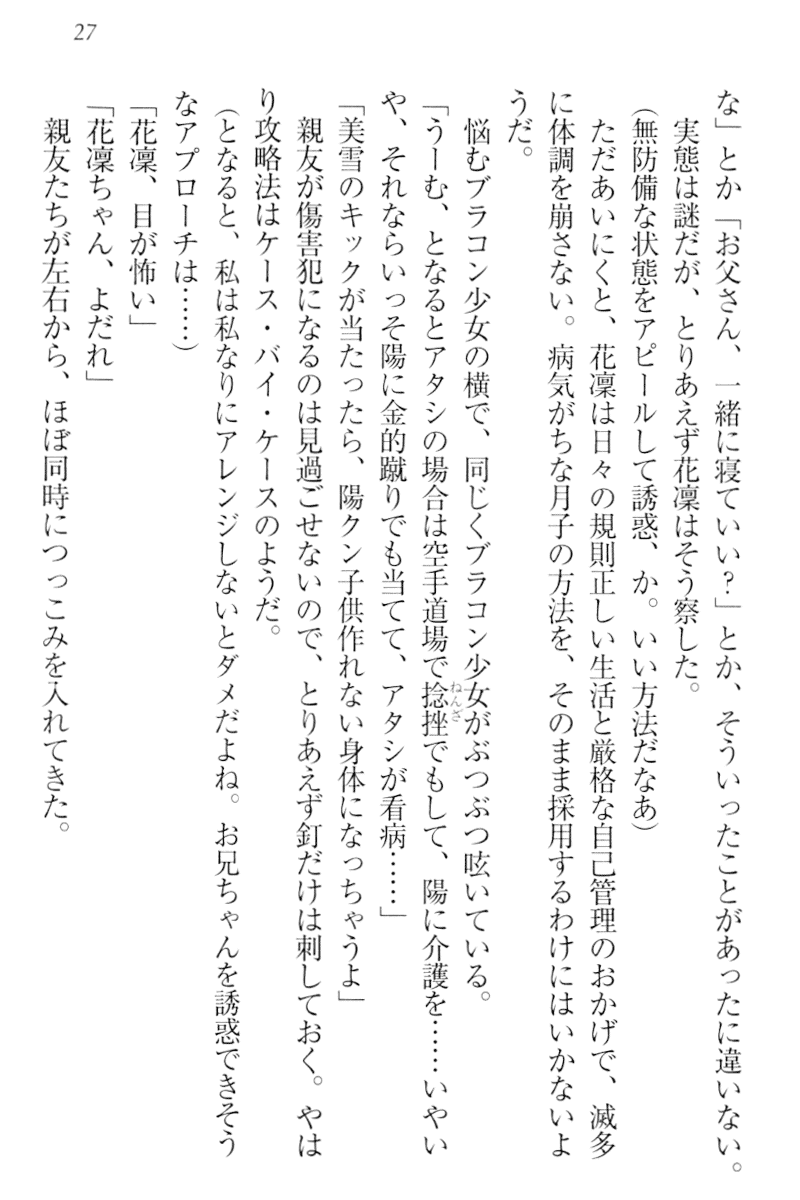 27
な」とか「お父さん、一緒に寝ていい？」とか、そういったことがあったに違いない。
実態は謎だが、とりあえず花凜はそう察した。
（無防備な状態をアピールして誘惑、か。いい方法だなあ）
ただあいにくと、花凜は日々の規則正しい生活と厳格な自己管理のおかげで、滅多
に体調を崩さない。病気がちな月子の方法を、そのまま採用するわけにはいかないよ
うだ。
悩むブラコン少女の横で、同じくブラコン少女がぶつぶつ呟いている。
「うーむ、となるとアタシの場合は空手道場で捻挫でもして、陽に介護を……いやい
ねんざ
や、それならいっそ陽に金的蹴りでも当てて、アタシが看病……」
「美雪のキックが当たったら、陽クン子供作れない身体になっちゃうよ」
親友が傷害犯になるのは見過ごせないので、とりあえず釘だけは刺しておく。やは
り攻略法はケース・バイ・ケースのようだ。
（となると、私は私なりにアレンジしないとダメだよね。お兄ちゃんを誘惑できそう
なアプローチは……）
「花凜、目が怖い」
「花凜ちゃん、よだれ」
親友たちが左右から、ほぼ同時につっこみを入れてきた。